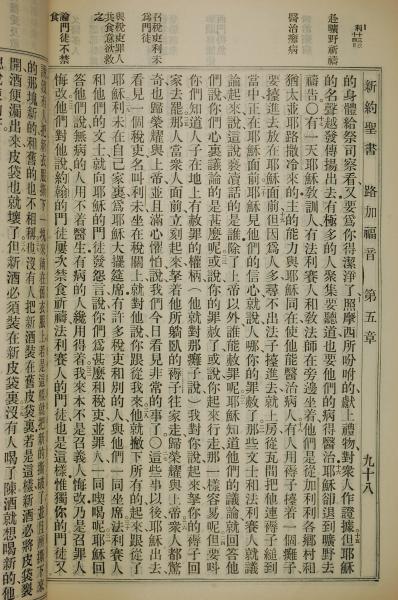 新約聖書 路加福音 第五章 九十八
赴曠野祈禱
醫治癱病
召稅吏利未爲門徒
與稅吏罪人共食意欲救之
論門徒不禁食
的身體給祭司察看又要爲你得潔淨了照摩西所吩咐的獻上禮物對衆人作證據但耶穌
的名聲越發傳揚出去有極多的人聚集要聽道也要他們的病得醫治耶穌卻退到曠野去
禱告○有一天耶穌敎訓人有法利賽人和敎法師在旁邊坐着他們是從加利利各鄉村和
猶太並耶路撒冷來的主的能力與耶穌同在使他能醫治病人有人用褥子擡着一個癱子
要擡進去放在耶穌面前但因爲人多尋不出法子擡進去就上房從瓦間把他連褥子縋到
當中正在耶穌面前耶穌見他們的信心就說人哪你的罪赦了那些文士和法利賽人就議
論起來說這說褻瀆話的是誰除了上帝以外誰能赦罪呢耶穌知道他們的議論就回答他
們說你們心裏議論的是甚麼呢或說你的罪赦了或說你起來行走那一樣容易呢但要叫
你們知道人子在地上有赦罪的權柄(他就對那癱子說)我對你說起來拏你的褥子回
家去罷那人當衆人面前立刻起來拏着他所躺臥的褥子往家走歸榮耀與上帝衆人都驚
奇也歸榮耀與上帝並且滿心懼怕說我們今日看見非常的事了○這些事以後耶穌出去
看見一個稅吏名叫利未坐在稅關上就對他說你跟從我來他就撇下所有的起來跟從了
耶穌利未在自己家裏爲耶穌大擺筵席有許多稅吏和別的人與他們一同坐席法利賽人
和他們的文士就向耶穌的門徒發怨言說你們爲甚麼和稅吏並罪人一同喫喝呢耶穌回
答他們說無病的人用不着醫生有病的人纔用得着我來本不是召義人悔改乃是召罪人
悔改他們對他說約翰的門徒屢次禁食祈禱法利賽人的門徒也是這樣惟獨你的門徒又
的那塊新的和舊的也不相稱也沒有人把新酒裝在舊皮袋裏若是這樣新酒必將皮袋裂
開酒便漏出來皮袋也就壞了但新酒必須裝在新皮袋裏沒有人喝了陳酒就想喝新的他